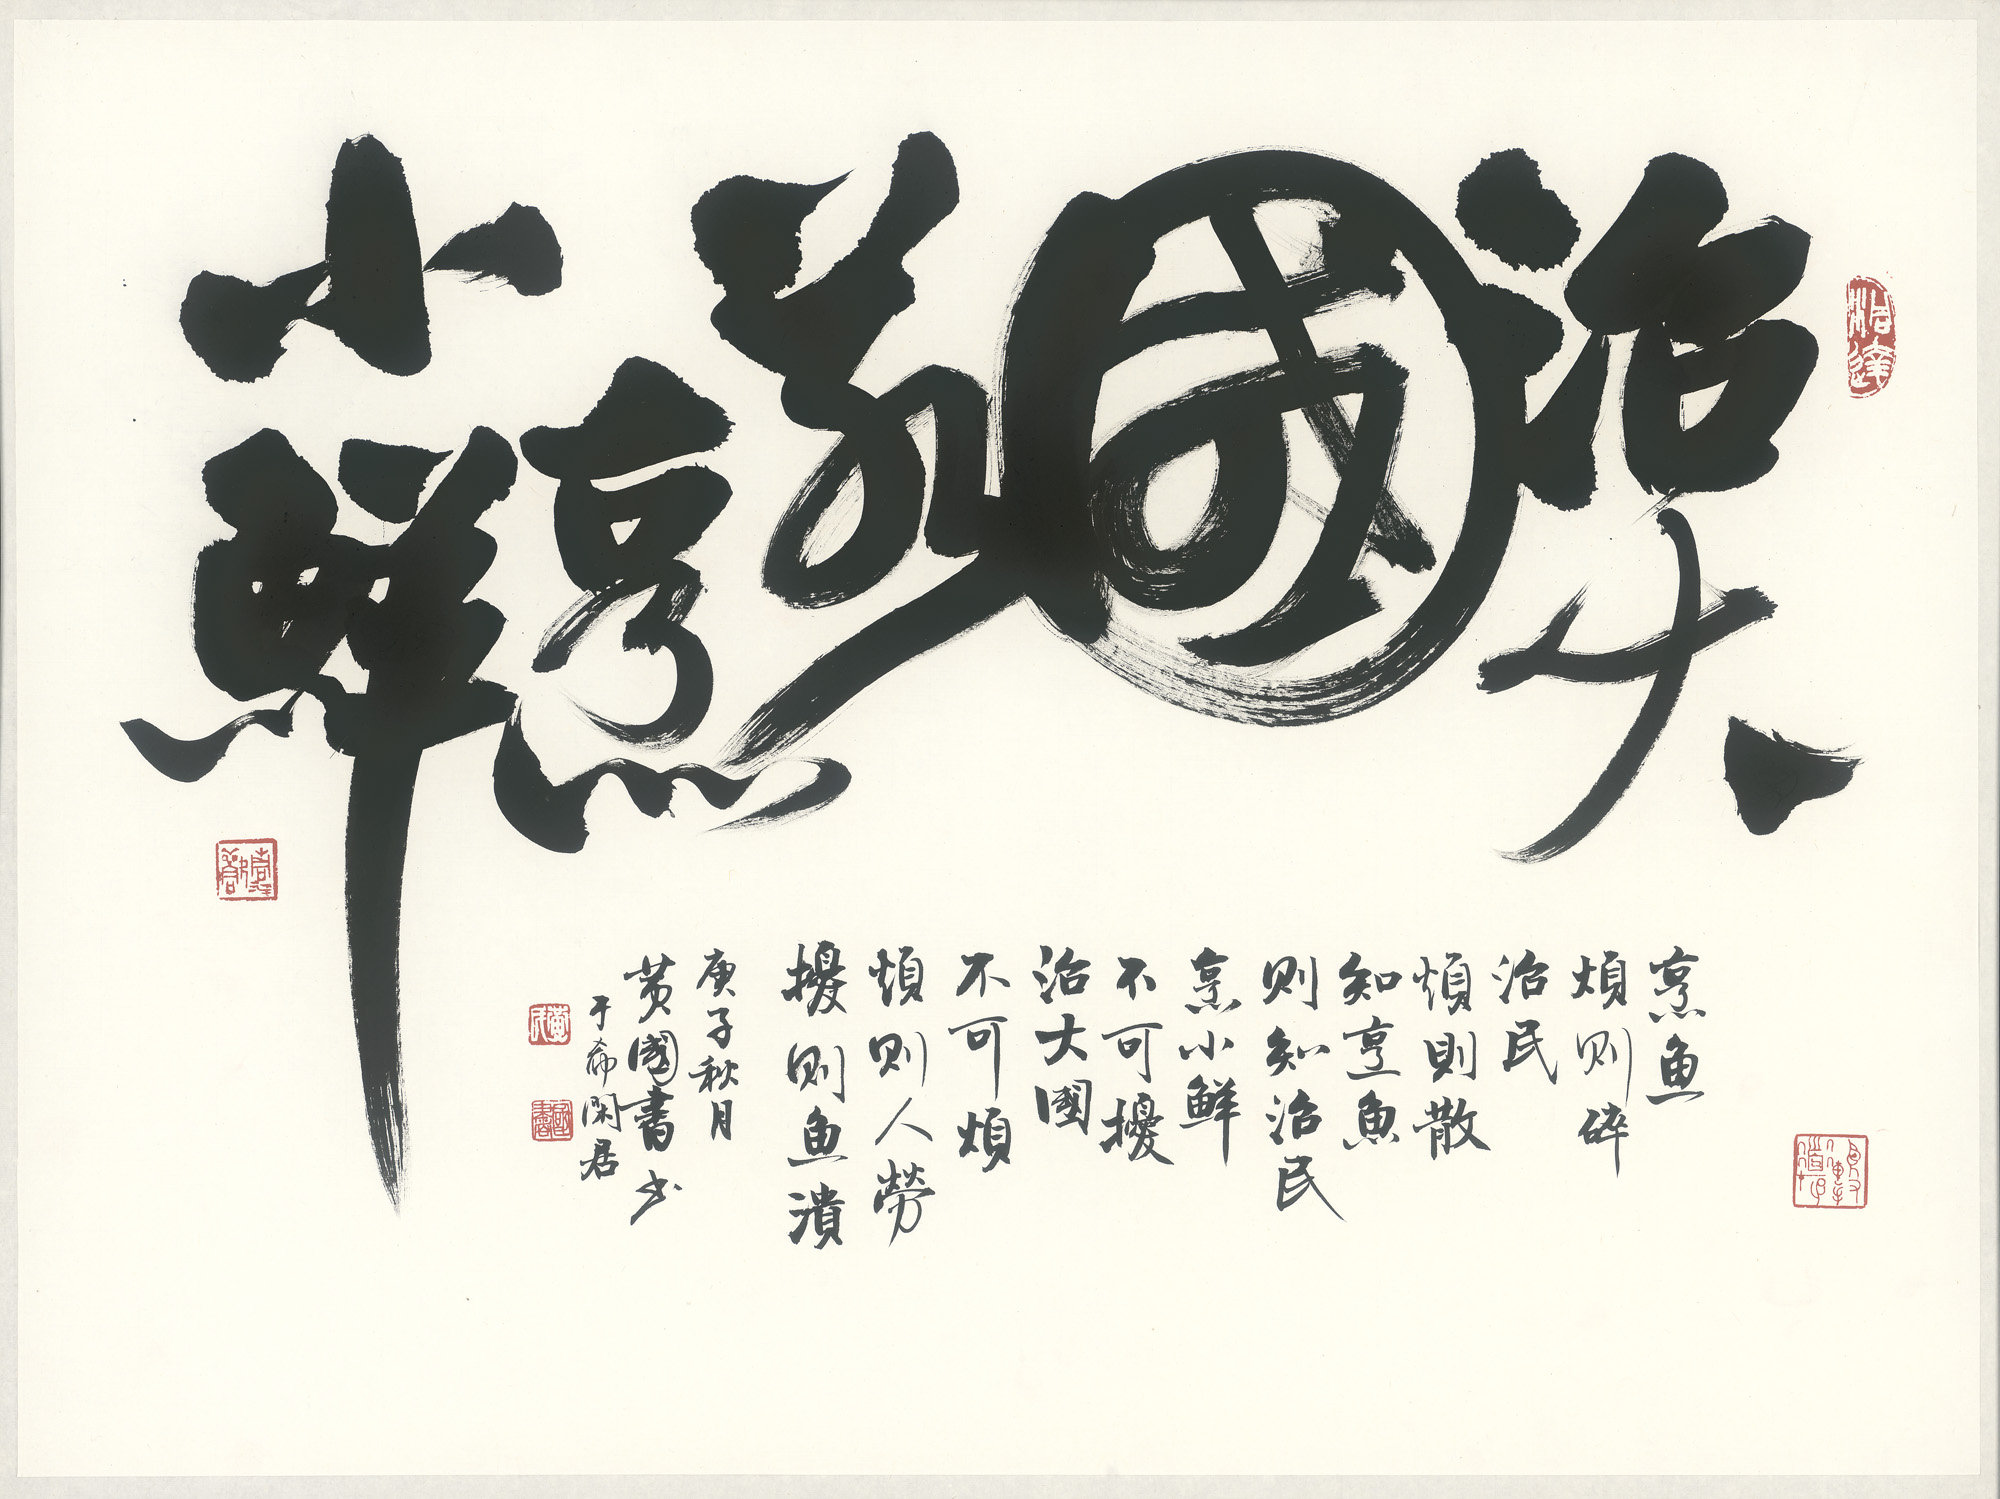 治大
國
若
烹
小鮮
烹魚
煩則碎
治民
煩則散
知烹魚
則知治民
烹小鮮
不可擾
治大國
不可煩
煩則人勞
擾則魚潰
庚子秋月
黃國書书
于希閑居
國書